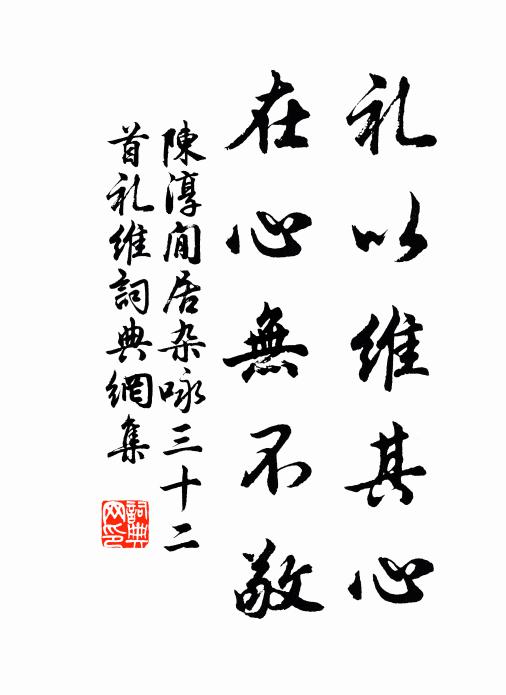 礼以維其心
在心無不敬
陳淳閒居杂咏三十二
首礼維詞典網集
詞典
网印